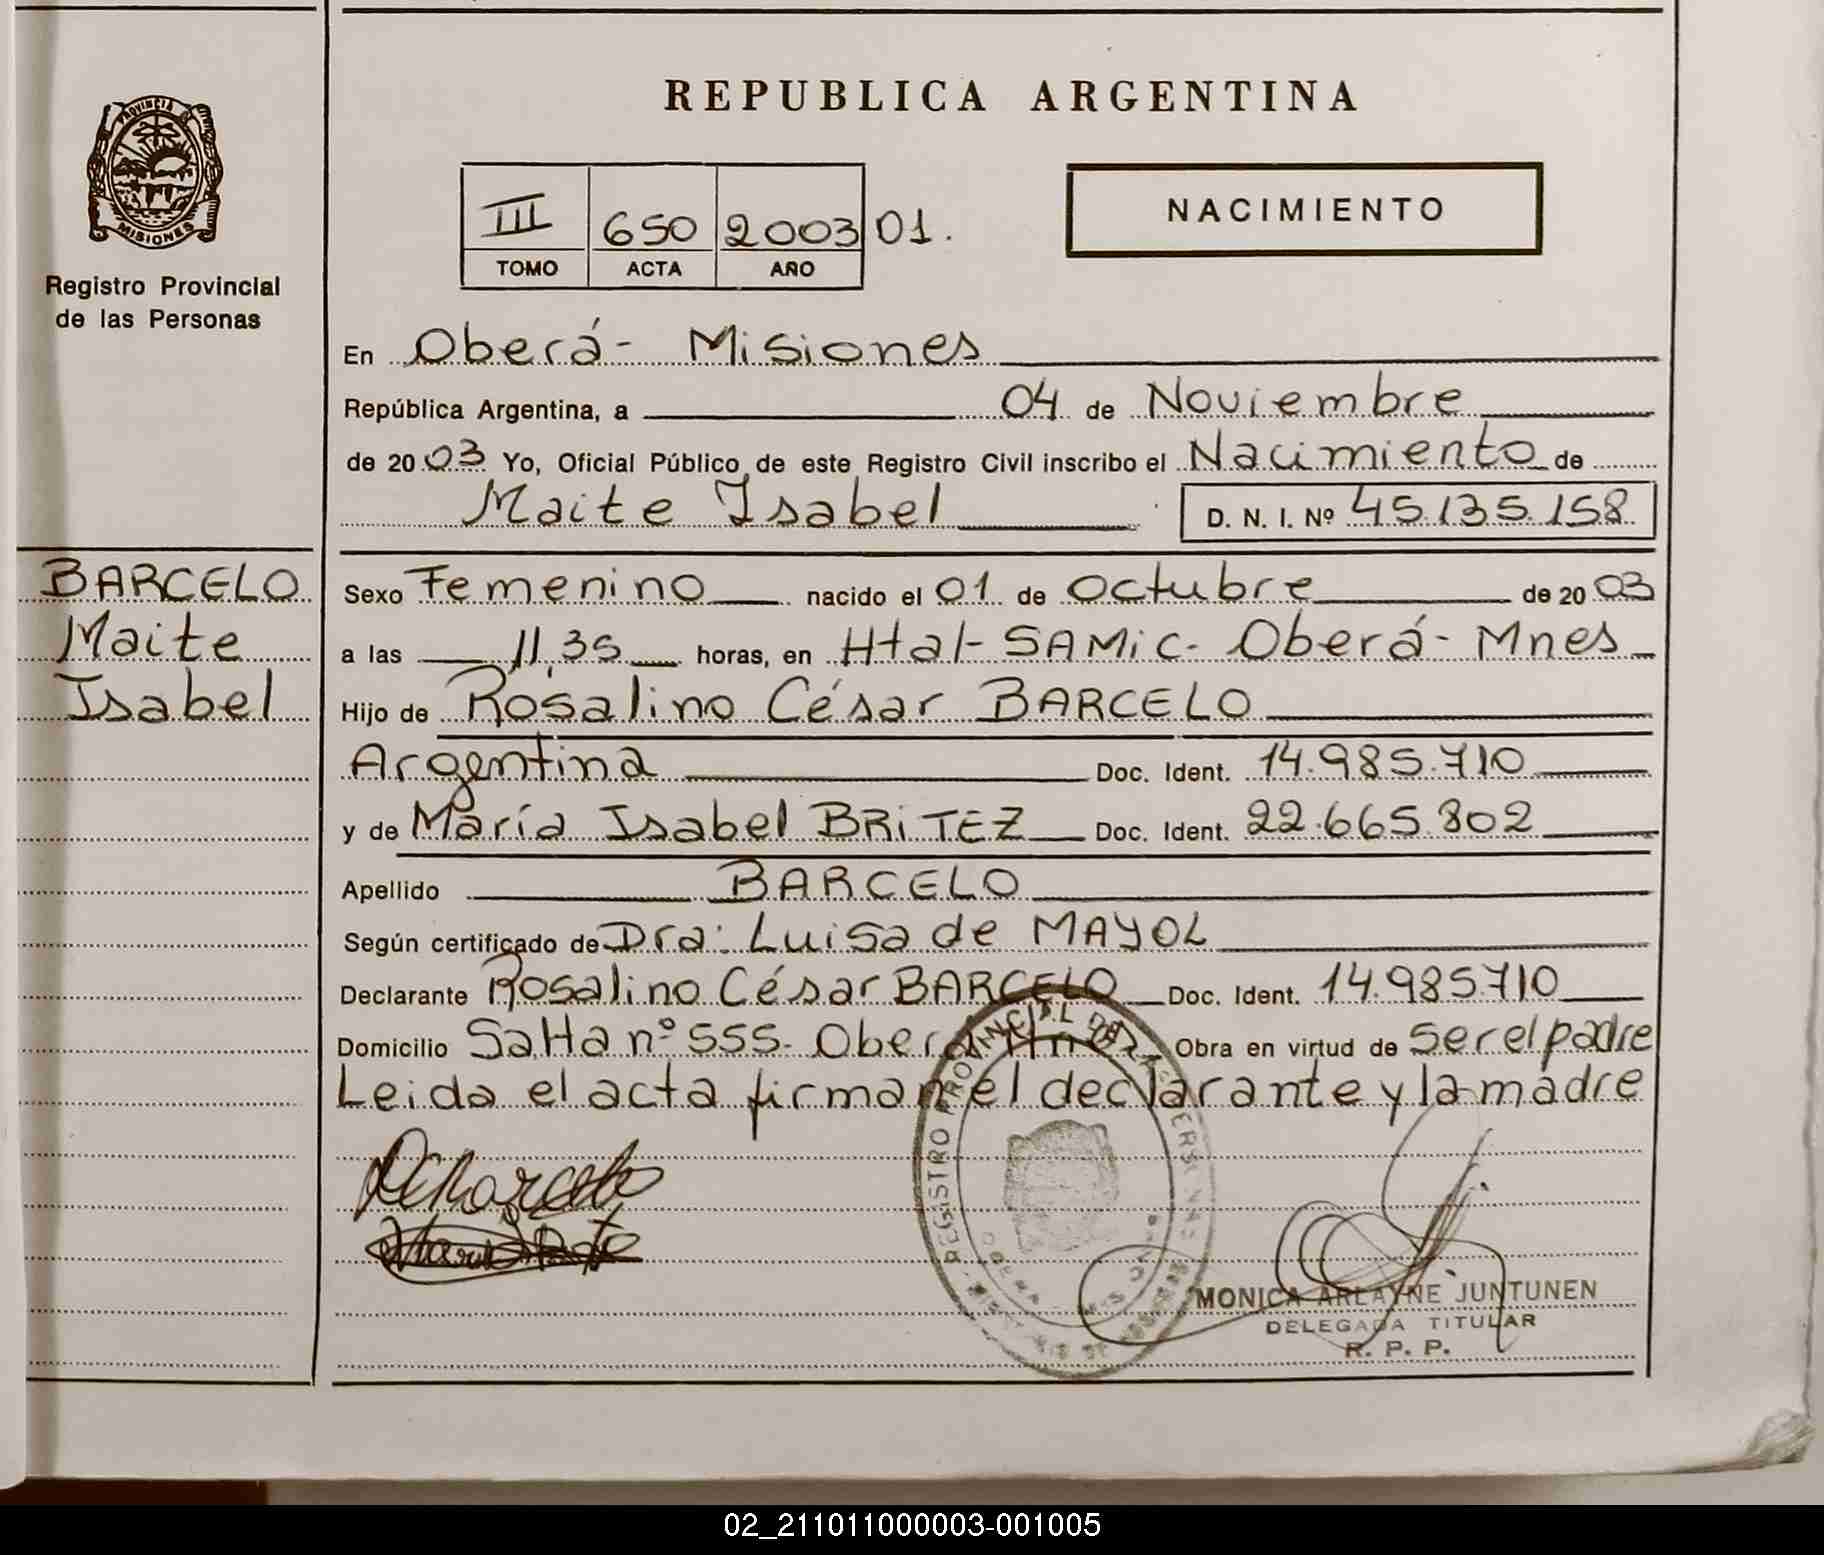 REPUBLICA ARGENTINA
PROVINCIA
MISIONES
Registro Provincial
de las Personas
III 650 2003 01.
TOMO ACTA AÑO
NACIMIENTO
En Oberá- Misiones
República Argentina, a 04 de Noviembre
de 2003 Yo, Oficial Público de este Registro Civil inscribo el Nacimiento de
Maite Isabel D. N. I. Nº 45.135.158
BARCELO
Maite
Isabel
Sexo Femenino nacido el 01 de Octubre de 2003
a las 11,35 horas, en Htal- SAMiC- Oberá- Mnes
Hijo de Rosalino César BARCELO
Argentina Doc. Ident. 14.985.710
y de María Isabel BRiTEZ Doc. Ident. 22.665.802
Apellido BARCELO
Según certificado de Dra: Luisa de MAYOL
Declarante Rosalino César BARCELO Doc. Ident. 14.985710
Domicilio Salta nº 555- Oberá Mnes Obra en virtud de ser el padre
Leida el acta firman el declarante y la madre
REGISTRO PROVINCIAL DE LAS PERSONAS
MONICA ARLAYNE JUNTUNEN
DELEGADA TITULAR
R. P. P.
02_211011000003-001005